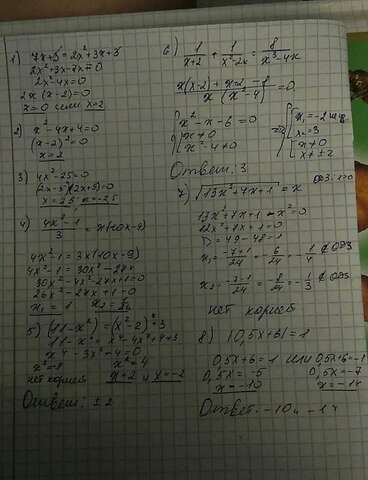 1) 7x+5=2x²+3x+5
2x²+3x-7x=0
2x²-4x=0
2x(x-2)=0
x=0 или x=2
2) x²-4x+4=0
(x-2)²=0
x=2
3) 4x²-25=0
(2x-5)(2x+5)=0
x=2,5 x=-2,5
4) (4x²-1)/3 = x(10x-9)
4x²-1=3x(10x-9)
4x²-1=30x²-27x
30x²-4x²-27x+1=0
26x²-27x+1=0
x₁=1 x₂=1/26
5) (11-x²)=(x²-2)²+3
11-x²=x⁴-4x²+4+3
x⁴-3x²-4=0
x²=-1 x²=4
нет корней x=2 и x=-2
Ответ: ±2
6) 1/(x+2) + 1/(x²-2x) = 8/(x³-4x)
(x(x-2)+x+2-8)/(x(x²-4))=0
x²-x-6=0
x≠0
x²-4≠0
x₁=-2
x₂=3
x≠0
x≠±2
Ответ: 3
7) √(13x²+7x+1)=x ОДЗ: x≥0
13x²+7x+1-x²=0
12x²+7x+1=0
D=49-48=1
x₁=(-7+1)/24=-6/24=-1/4 ∉ ОДЗ
x₂=(-7-1)/24=-8/24=-1/3 ∉ ОДЗ
нет корней
8) |0,5x+6|=1
0,5x+6=1 или 0,5x+6=-1
0,5x=-5 0,5x=-7
x=-10 x=-14
Ответ: -10 и -14